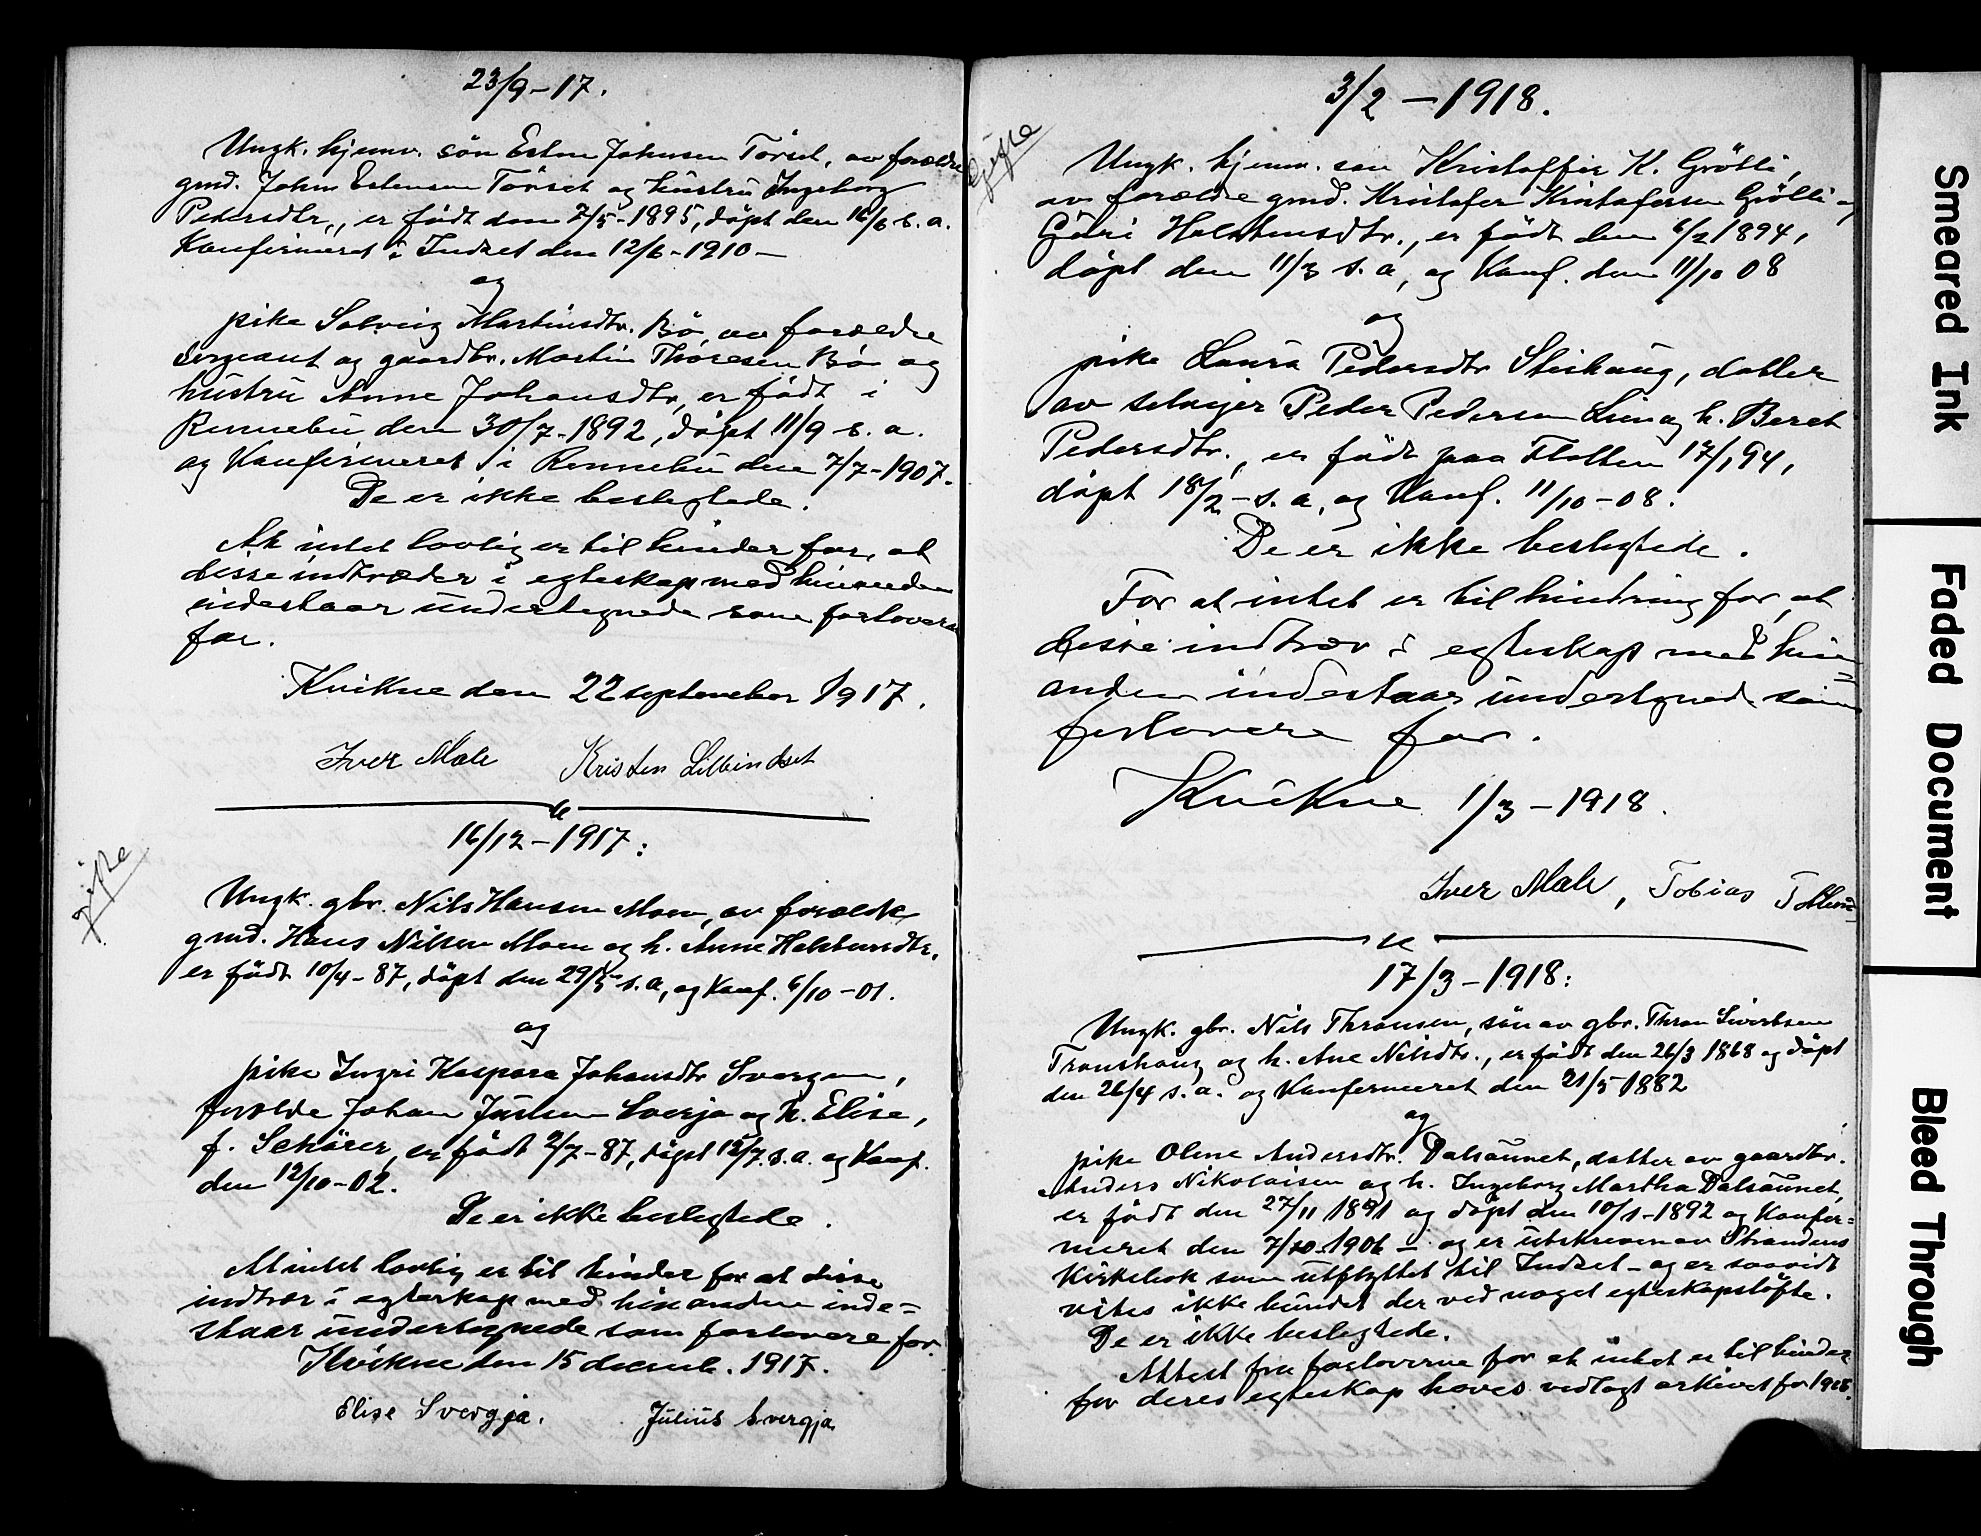 23/9-17.
Ungk. hjemv. sön Esten Johnsen Törset, av forældre
gmd. John Estensen Törset og hustru Ingeborg
Pedersdtr., er født den 7/5-1895, döpt den 16/6 s. a.
Konfirmeret i Indset den 12/6-1910 —
og
pike Solveig Martinsdtr. Bö, av forældre
sergeant og gaardbr. Martin Thoresen Bö og
hustru Anne Johansdtr, er födt i
Rennebu den 30/7-1892, döpt 11/9 s. a.
og Konfirmeret i Rennebu den 7/7-1907.
De er ikke beslegtede.
At intet lovlig er til hinder for, at
disse indtræder i egteskap med hinanden
indestaar undertegnede som forlovere
for.
Kvikne den 22 september 1917.
Iver Mæle Kristen Lillindset
16/12-1917:
gifte
Ungk. gbr. Nils Hansen Moen, av forældre
gmd. Hans Nilsen Moen og h. Anne Halstensdtr.
er födt 10/4-87, döpt den 29/5 s. a, og Konf. 6/10-01.
og
pike Ingri Kaspara Johansdtr Svergja,
forældre Johan Justsen Svergja og h. Elise,
f. Schärer, er födt 2/7-87, döpt 12/7 s. a. og Konf.
den 12/10-02.
De er ikke beslegtede.
At intet lovlig er til hinder for at disse
indtrær i egteskap med hinanden inde=
staar undertegnede som forlovere for.
Kvikne den 15 decemb. 1917.
Elise Svergja. Julius Svergja
3/2-1918.
gifte
Ungk. hjemv. sön Kristoffer K. Grötli,
av forældre gmd. Kristofer Kristofersen Grötli og
Göri Halstensdtr., er födt den 6/2 1894,
döpt den 11/3 s. a, og Konf. den 11/10 08
og
pike Laura Pedersdtr Stishaug, datter
av selveier Peder Pedersen Lien og h. Beret
Pedersdtr., er födt paa Flotten 17/1 94,
döpt 18/2-s. a, og Konf. 11/10-08.
De er ikke beslegtede.
For at intet er til hindring for, at
disse indtrær i egteskap med hin=
anden indestaar undertegnede som
forlovere for.
Kvikne 1/3-1918.
Iver Mæle, Tobias
17/3-1918:
Ungk. gbr. Nils Thronsen, sön av gbr. Thron Sivertsen
Tronshaug og h. Ane Nilsdtr., er födt den 26/3 1868 og döpt
den 26/4 s. a. og Konfirmeret den 21/5 1882
og
pike Oline Andersdtr. Dalsaunet, datter av gaardbr.
Anders Nikolaisen og h. Ingeborg Martha Dalsaunet,
er födt den 27/11 1891 og döpt den 10/1-1892 og Konfir=
meret den 7/10-1906 — og er utskreven av Strandens
Kirkebok som utflyttet til Indset — og er saavidt
vites ikke bundet der ved noget egteskapslöfte.
De er ikke beslegtede.
Attest fra forloverne for at intet er til hinder
for deres egteskap haves vedlagt arkivet for 1918.
Smeared Ink
Faded Document
Bleed Through